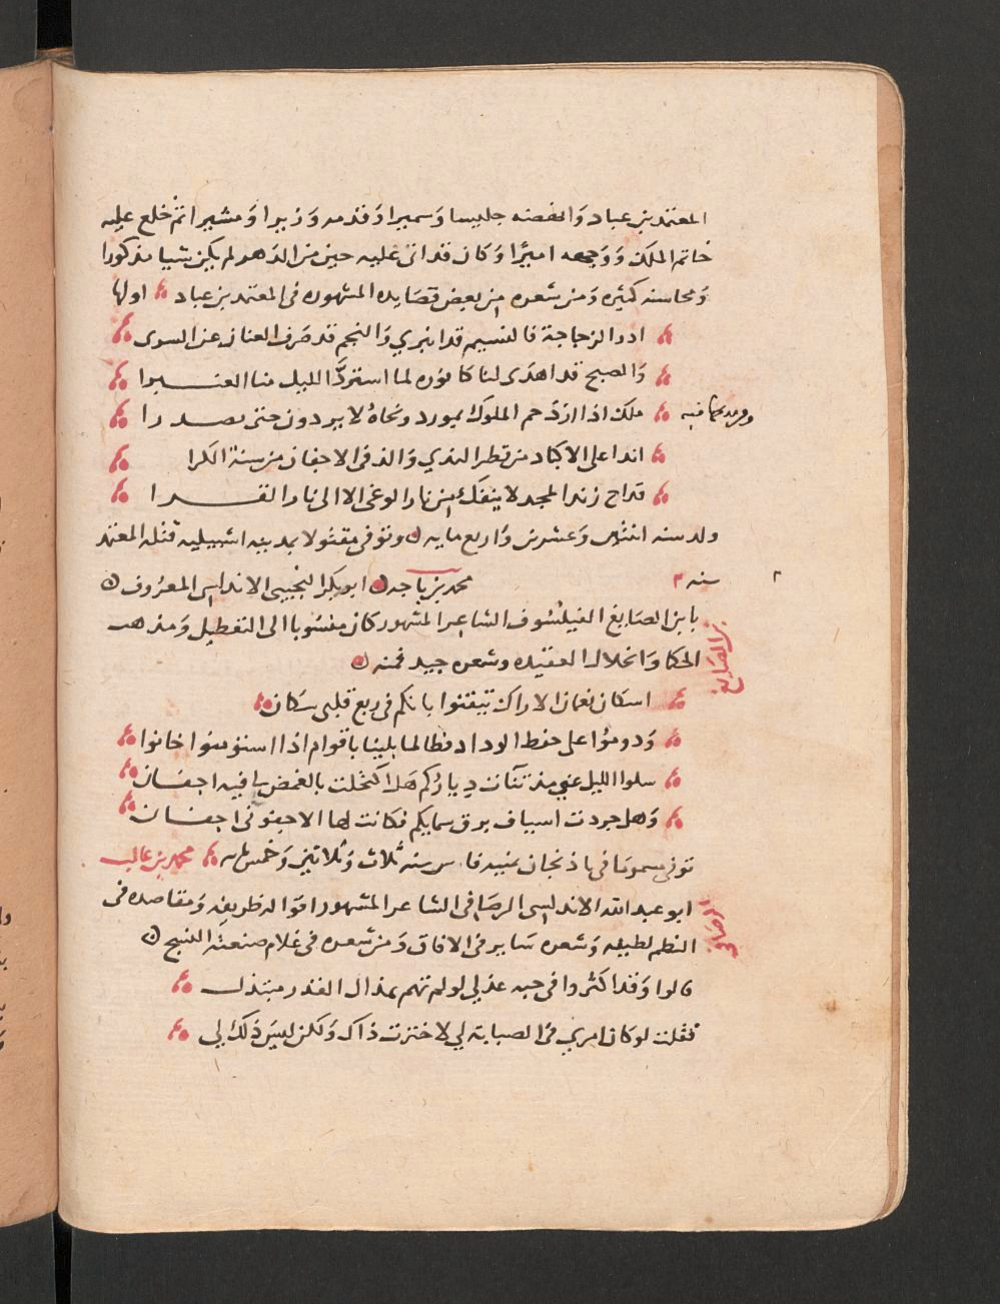 المعتمد بن عباد وانهضه جليسا وسميرا وقدمه وزيرا ومشيرا ثم خلع عليه
خاتم الملك ووجهه اميرا وكان قد اتى عليه حين من الدهر لم يكن شيا مذكورا
ومحاسنه كثيره ومن شعره من بعض قصايده المشهوره في المعتمد بن عباد اولها
ادر الزجاجة فالنسيم قد انبري والنجم قد صرف العنان عن السوى
والصبح قد اهدى لنا كافوره لما استردّ الليل منا العنبرا
ملك اذا ازدحم الملوك بمورد ونحاهُ لا يردون حتى يصدرا
اندا على الاكباد من قطر الندي والذ في الاجفان من سنة الكرا
قداح زند المجد لا ينفك من نار الوغى الا الى نار القرا
ولد سنه اثنين وعشرين واربع مايه وتوفي مقتولا بمدينه اشبيليه قتله المعتمد
سنه محمد بن باجه ابو بكر التجيبي الاندلسي المعروف
بابن الصايغ الفيلسوف الشاعر المشهور كان منسوبا الى التعطيل ومذهب
الحكا وانحلال العقيده وشعره جيد فمنه
بن الصايغ
اسكان نعمان الاراك تيقنوا بانكم في ربع قلبي سكان
ودوموا على حفظ الوداد فطالما بلينا باقوام اذا استؤمنوا خانوا
سلوا الليل عني مذ تنآت دياركم هل اكتحلت بالغمض لي فيه اجفان
وهل جردت اسياف برق سمايكم فكانت لها الا جفوني اجفان
توفي مسموما في باذنجان بمدينة فاس سنه ثلاث وثلاثين وخمس مايه محمد بن غالب
ابو عبد الله الاندلسي الرصافي الشاعر المشهور اقواله ظريفه ومقاصده في
النظم لطيفه وشعره ساير في الافاق ومن شعره في غلام صنعته النسج
الرصافي
قالوا وقد اكثروا في حبه عذلي لو لم تهم بمذال القدر مبتذل
فقلت لو كان امري في الصبابة لي لاخترت ذاك ولكن ليس ذلك لي